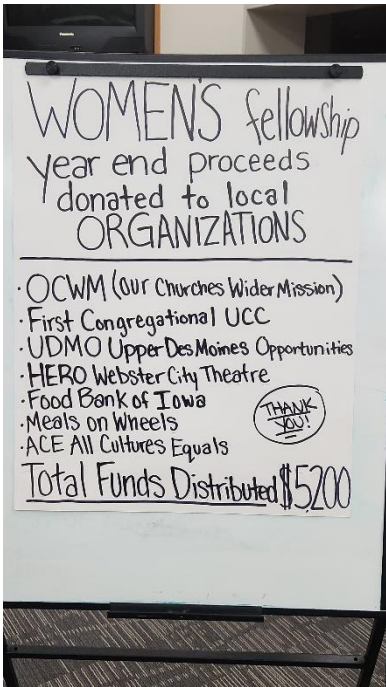 WOMEN'S fellowship
year end proceeds
donated to local
ORGANIZATIONS
· OCWM (our Churches Wider Mission)
· First Congregational UCC
· UDMO Upper Des Moines Opportunities
· HERO Webster City Theatre
· Food Bank of Iowa
· Meals on Wheels
· ACE All Cultures Equals
THANK
YOU!
Total Funds Distributed $5,200